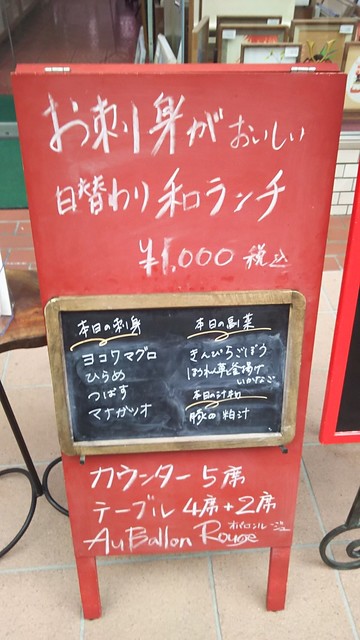 お刺身がおいしい
日替わり和ランチ
¥1,000 税込
本日の刺身
ヨコワマグロ
ひらめ
つばす
マナガツオ
本日の副菜
きんぴらごぼう
ほうれん草と釜揚げ
いかなご
本日の汁物
豚の粕汁
カウンター 5席
テーブル 4席+2席
Au Ballon Rouge オバロンルージュ